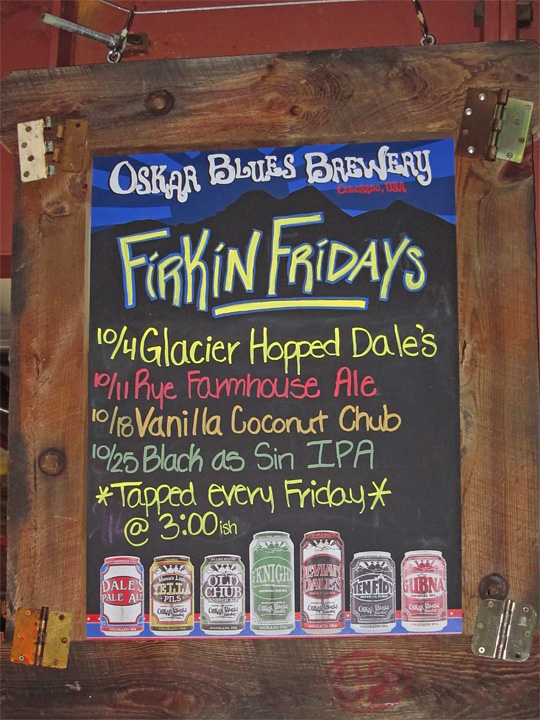 OSKAR BLUES BREWERY
COLORADO, USA
FIRKIN FRIDAYS
10/4 Glacier Hopped Dale's
10/11 Rye Farmhouse Ale
10/18 Vanilla Coconut Chub
10/25 Black as Sin IPA
*Tapped every Friday*
@ 3:00ish
DALE'S
PALE ALE
Mama's Little
YELLA
PILS
OLD
CHUB
G'KNIGHT
DEVIANT
DALE'S
TENFIDY
GUBNA